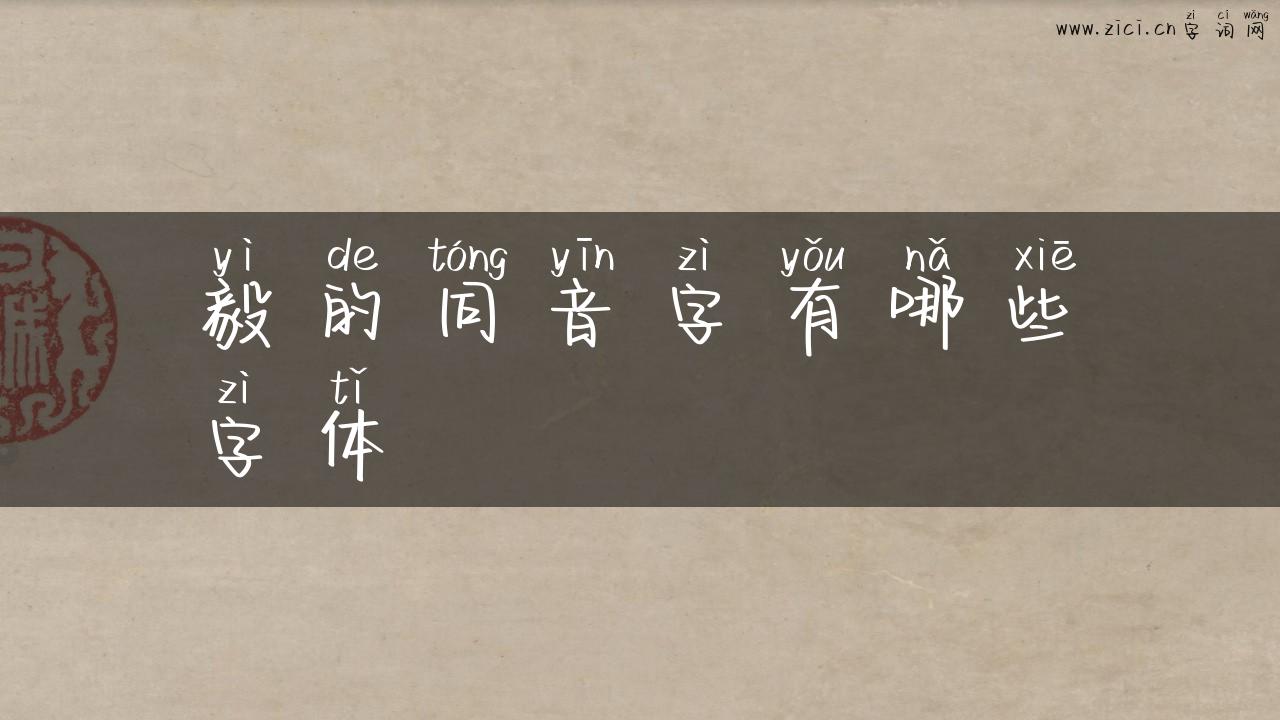 zì cí wǎng
www.zici.cn 字词网
yì de tóng yīn zì yǒu nǎ xiē
毅的同音字有哪些
zì tǐ
字体